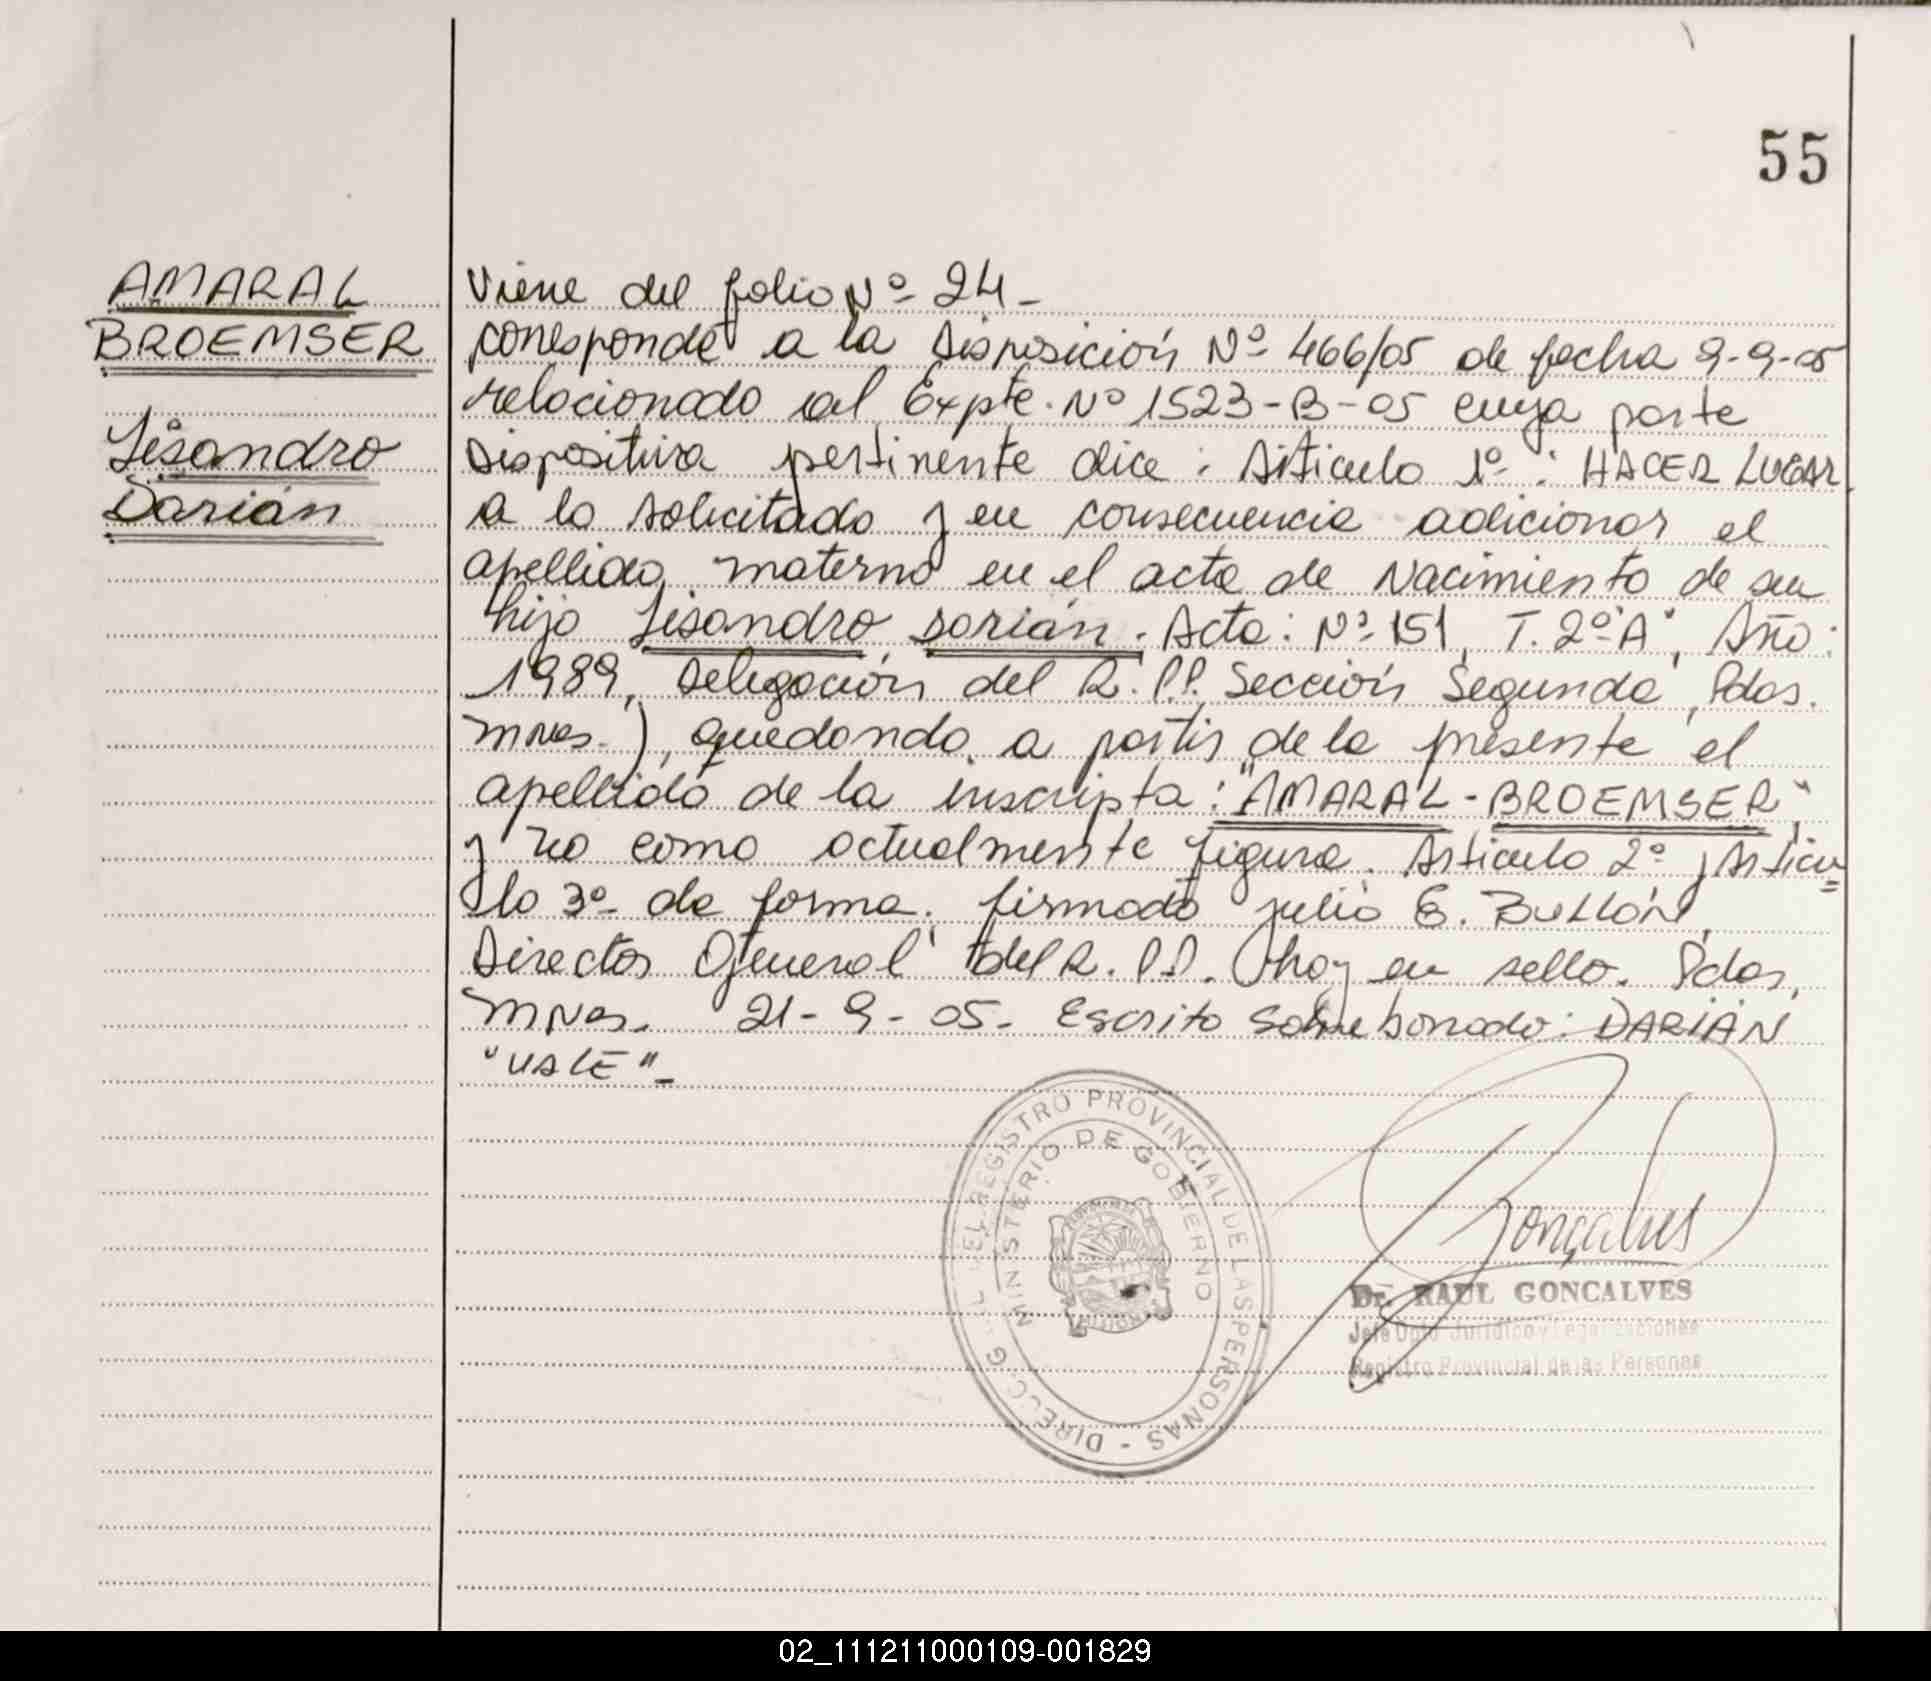 55
AMARAL
BROEMSER
Lisandro
Darián
Viene del folio Nº 24-
corresponde a la Disposición Nº 466/05 de fecha 9-9-05
relacionado al Expte. Nº 1523-B-05 cuya parte
Dispositiva pertinente dice: Artículo 1º: HACER LUGAR
a lo solicitado y en consecuencia adicionar el
apellido materno en el acta de Nacimiento de su
hijo Lisandro Darián. Acta: Nº 151, T. 2º "A", Año:
1989, Delegación del R.P.P. Sección Segunda, Pdas.
Mnes.), quedando a partir de la presente el
apellido de la inscripta: "AMARAL-BROEMSER",
y no como actualmente figura. Artículo 2º y Artícu=
lo 3º de forma. firmado julio E. BULLÓN,
Director General del R.P.P. hay un sello. Pdas,
Mnes. 21-9-05. Escrito Sobre borrado: DARIÁN
"VALE"-
DEL REGISTRO PROVINCIAL DE LAS PERSONAS - DIREC. G
MINISTERIO DE GOBIERNO
MISIONES
Gonçalves
Dr. RAUL GONCALVES
Jefe Dpto Jurídico y Legalizaciones
Registro Provincial de las Personas
02_111211000109-001829